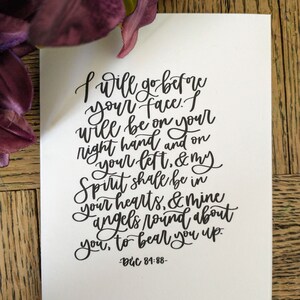 I will go before
your face. I
will be on your
right hand and on
your left, & my
Spirit shall be in
your hearts, & mine
angels round about
you, to bear you up.
-D&C 84:88-